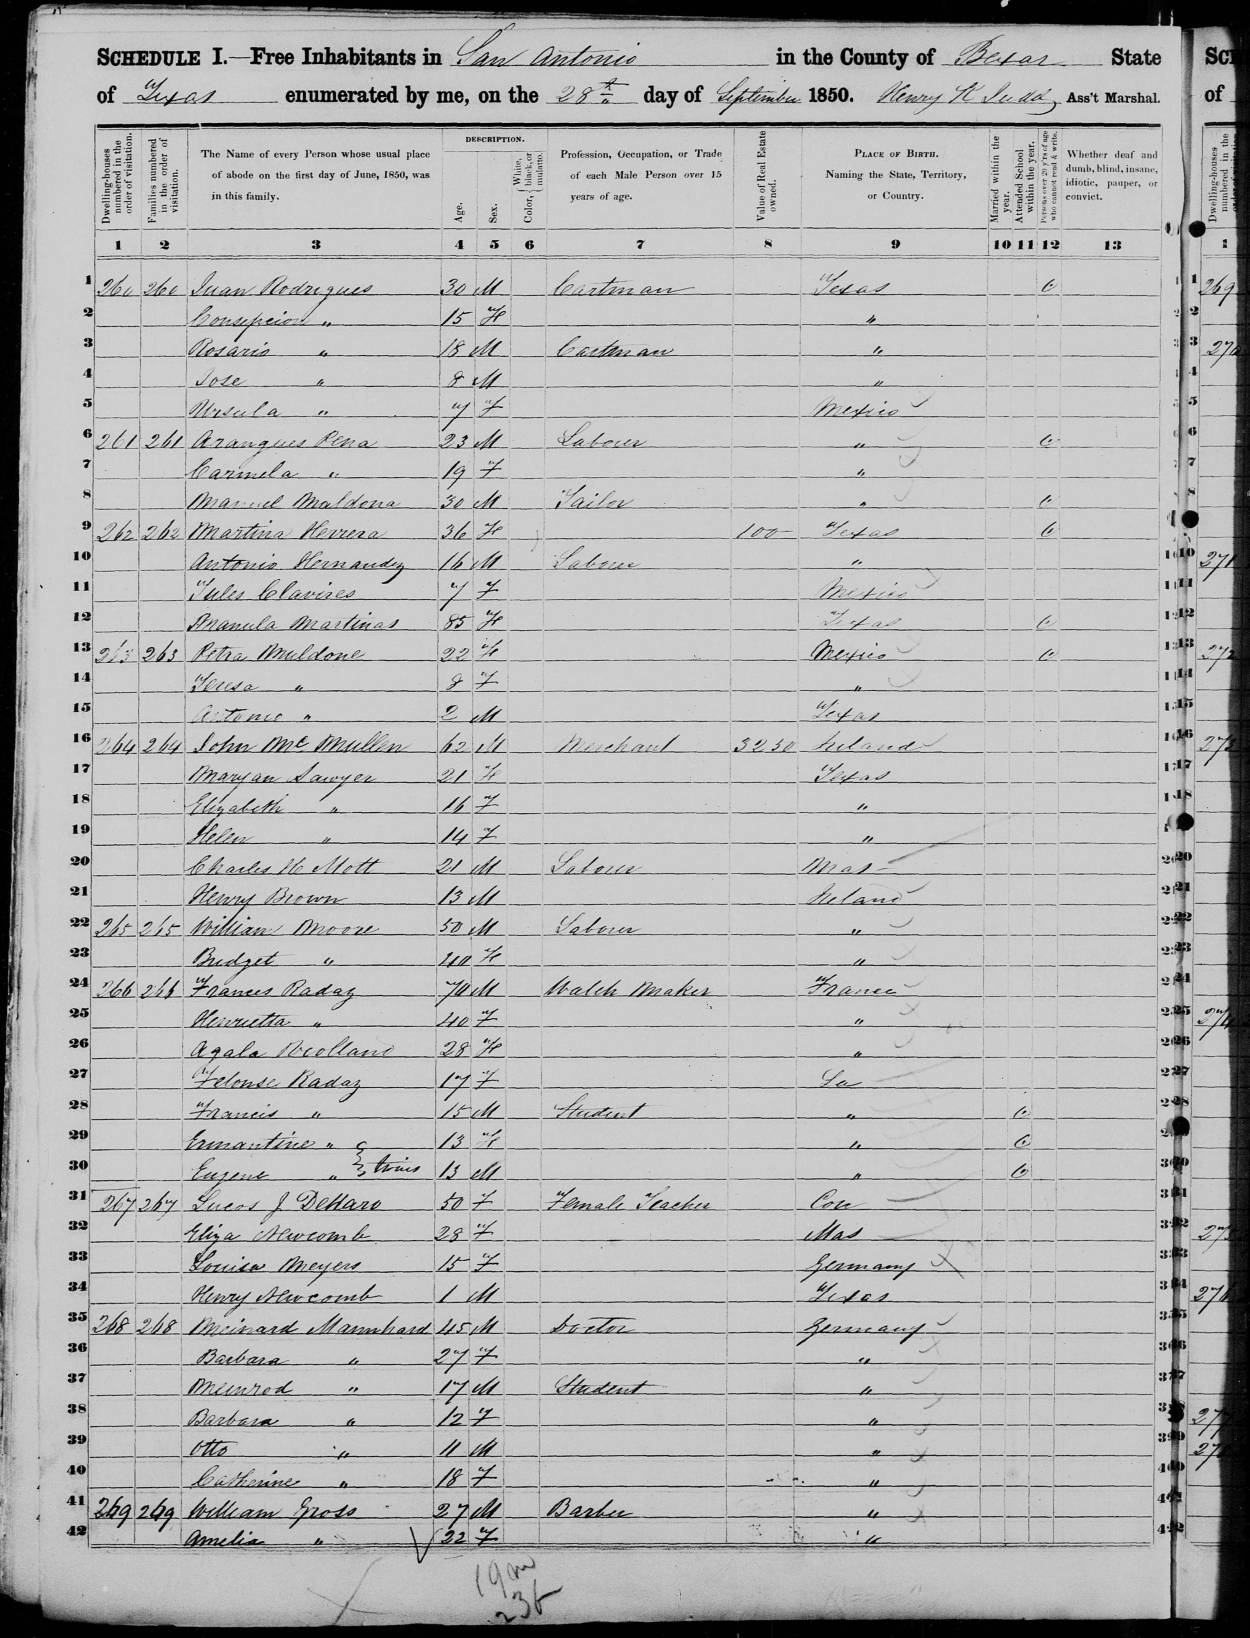 SCHEDULE I.—Free Inhabitants in San Antonio in the County of Bexar State
of Texas enumerated by me, on the 28th day of September 1850. Henry K Judd Ass't Marshal.
Dwelling-houses numbered in the order of visitation.
Families numbered in the order of visitation.
The Name of every Person whose usual place of abode on the first day of June, 1850, was in this family.
DESCRIPTION.
Age.
Sex.
Color, { White, black, or mulatto.
Profession, Occupation, or Trade of each Male Person over 15 years of age.
Value of Real Estate owned.
PLACE OF BIRTH. Naming the State, Territory, or Country.
Married within the year.
Attended School within the year.
Persons over 20 y'rs of age who cannot read & write.
Whether deaf and dumb, blind, insane, idiotic, pauper, or convict.
1 2 3 4 5 6 7 8 9 10 11 12 13
1 260 260 Juan Rodrigues 30 M Cartman Texas
2 Consepcion " 15 F "
3 Rosario " 18 M Cartman "
4 Jose " 8 M "
5 Ursula " 7 F Mexico
6 261 261 Arangues Pena 23 M Labourer "
7 Carmela " 19 F "
8 Manuel Maldona 30 M Tailor "
9 262 262 Martina Herrera 36 F 100 Texas
10 Antonio Hernandez 16 M Labourer "
11 Jules Clavires 7 F Mexico
12 Manula Martinas 85 F Texas
13 263 263 Petra Muldone 22 F Mexico
14 Teresa " 8 F "
15 Antonio " 2 M Texas
16 264 264 John Mc Mullen 62 M Merchant 3250 Ireland
17 Maryan Sawyer 21 F Texas
18 Elizabeth " 16 F "
19 Helen " 14 F "
20 Charles H Mott 21 M Labourer Mas
21 Henry Brown 13 M Ireland
22 265 265 William Moore 50 M Labourer "
23 Bridget " 40 F "
24 266 266 Frances Radaz 70 M Watch Maker France
25 Henrietta " 40 F "
26 Agala 28 F "
27 Felonse Radaz 17 F La
28 Francis " 15 M Student "
29 Ermantine " 13 F "
30 Eugene " } twins 13 M "
31 267 267 Lucos J DeHaro 50 F Female Teacher Con
32 Eliza Newcomb 28 F Mas
33 Louisa Meyers 15 F Germany
34 Henry Newcomb 1 M Texas
35 268 268 Meinard Mannhard 45 M Doctor Germany
36 Barbara " 27 F "
37 Meinrod " 17 M Student "
38 Barbara " 12 F "
39 Otto " 11 M "
40 Catherine " 18 F "
41 269 269 William Gross 27 M Barber "
42 Amelia " 22 F "
19 m
23 f